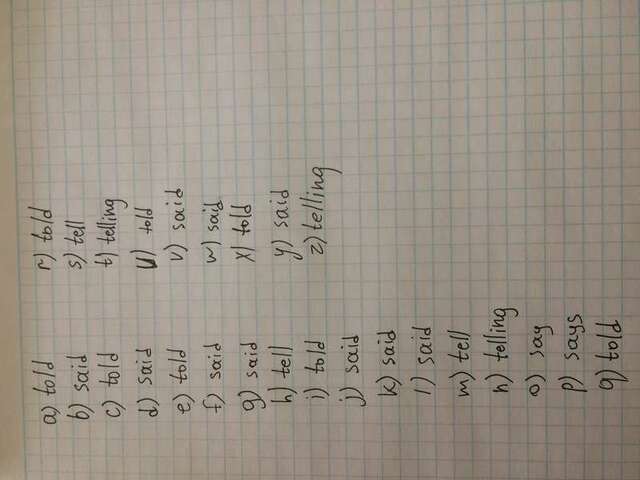 a) told
b) said
c) told
d) said
e) told
f) said
g) said
h) tell
i) told
j) said
k) said
l) said
m) tell
n) telling
o) say
p) says
q) told
r) told
s) tell
t) telling
u) told
v) said
w) said
x) told
y) said
z) telling